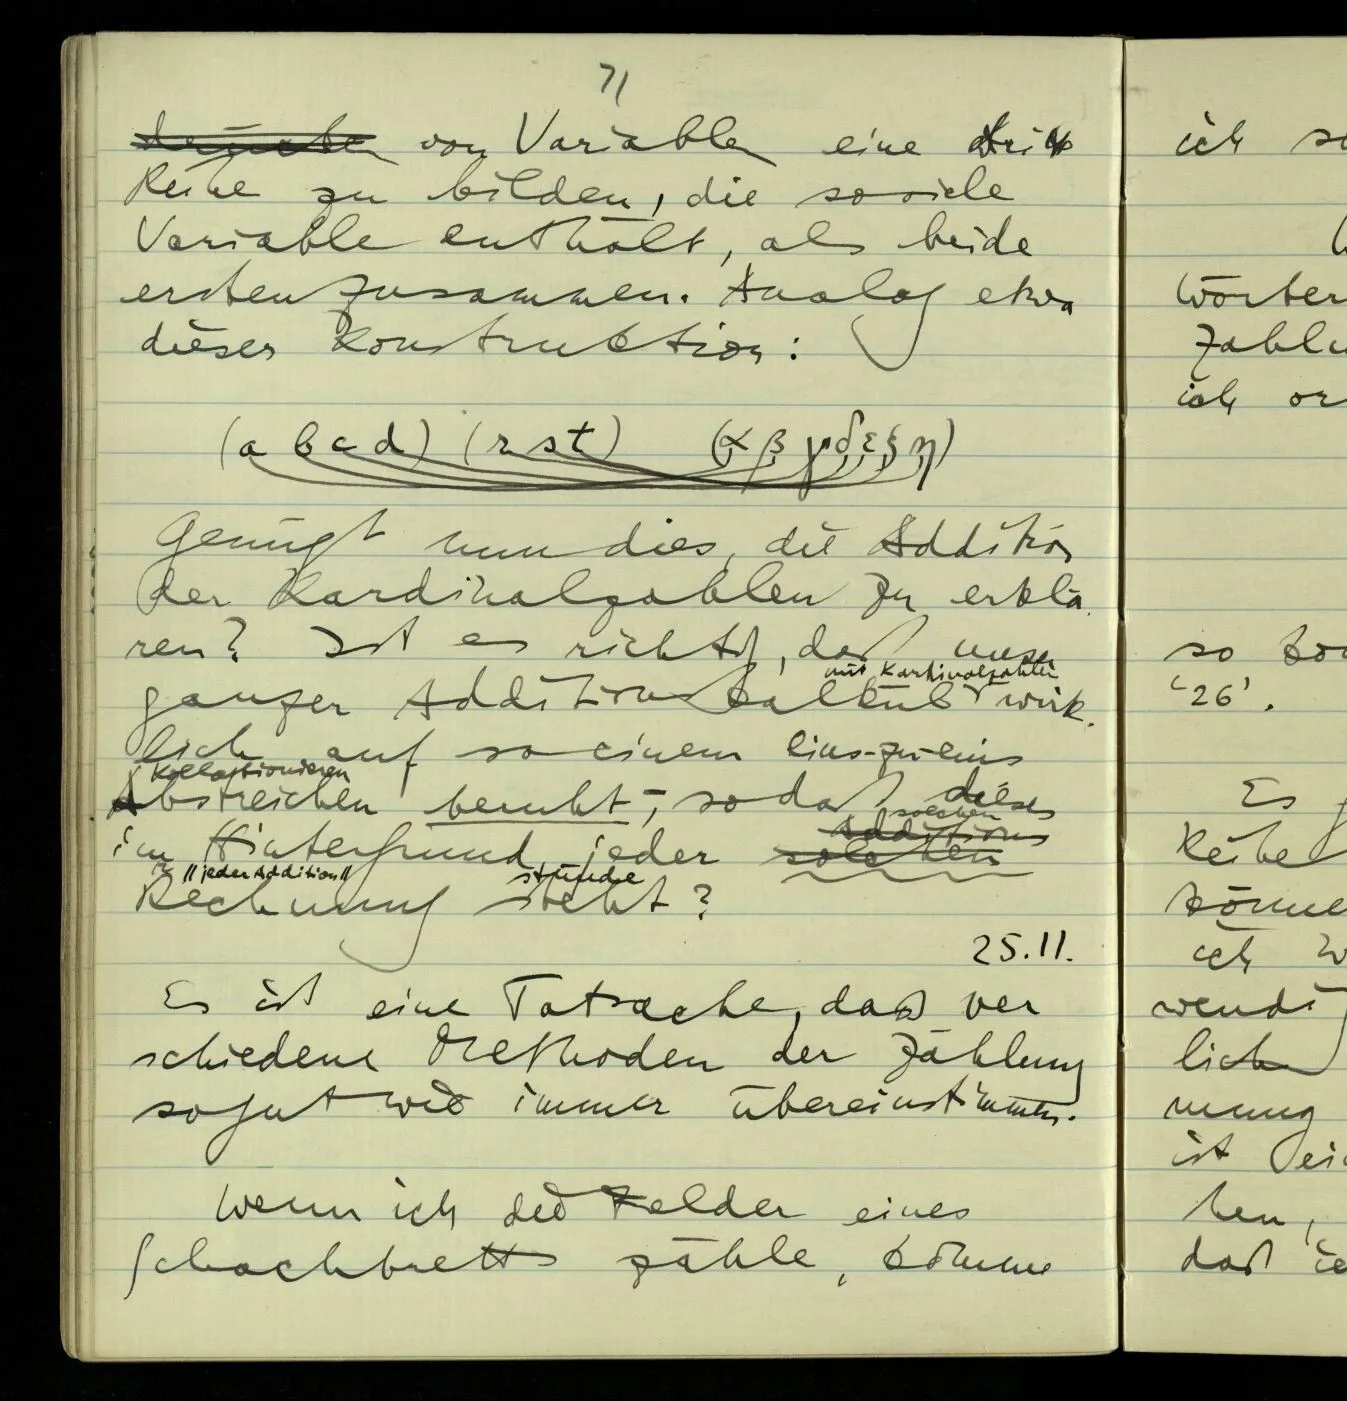 71
drücken von Variablen eine dritte
Reihe zu bilden, die soviele
Variable enthält, als beide
ersten zusammen. Analog etwa
dieser Konstruktion:
(a b c d) (r s t) (α β γ δ ε ξ η)
Genügt nun dies, die Addition
der Kardinalzahlen zu erklä-
ren? Ist es richtig, daß unser
mit Kardinalzahlen
ganzer Additionskalkül wirk-
lich auf so einem Eins-zu-eins
Kollationieren
Abstreichen beruht; sodaß dieses
solchen
Additions
im Hintergrund jeder solchen
"jeder Addition" stünde
Rechnung steht?
25.11.
Es ist eine Tatsache, daß ver
schiedene Methoden der Zählung
so gut wie immer übereinstimmen.
Wenn ich die Felder eines
Schachbretts zähle, komme
ich
Wörter
ich
so
'26'.
Es
Reihe
können
ich
wendig
lich
nung
ist
hen,
daß